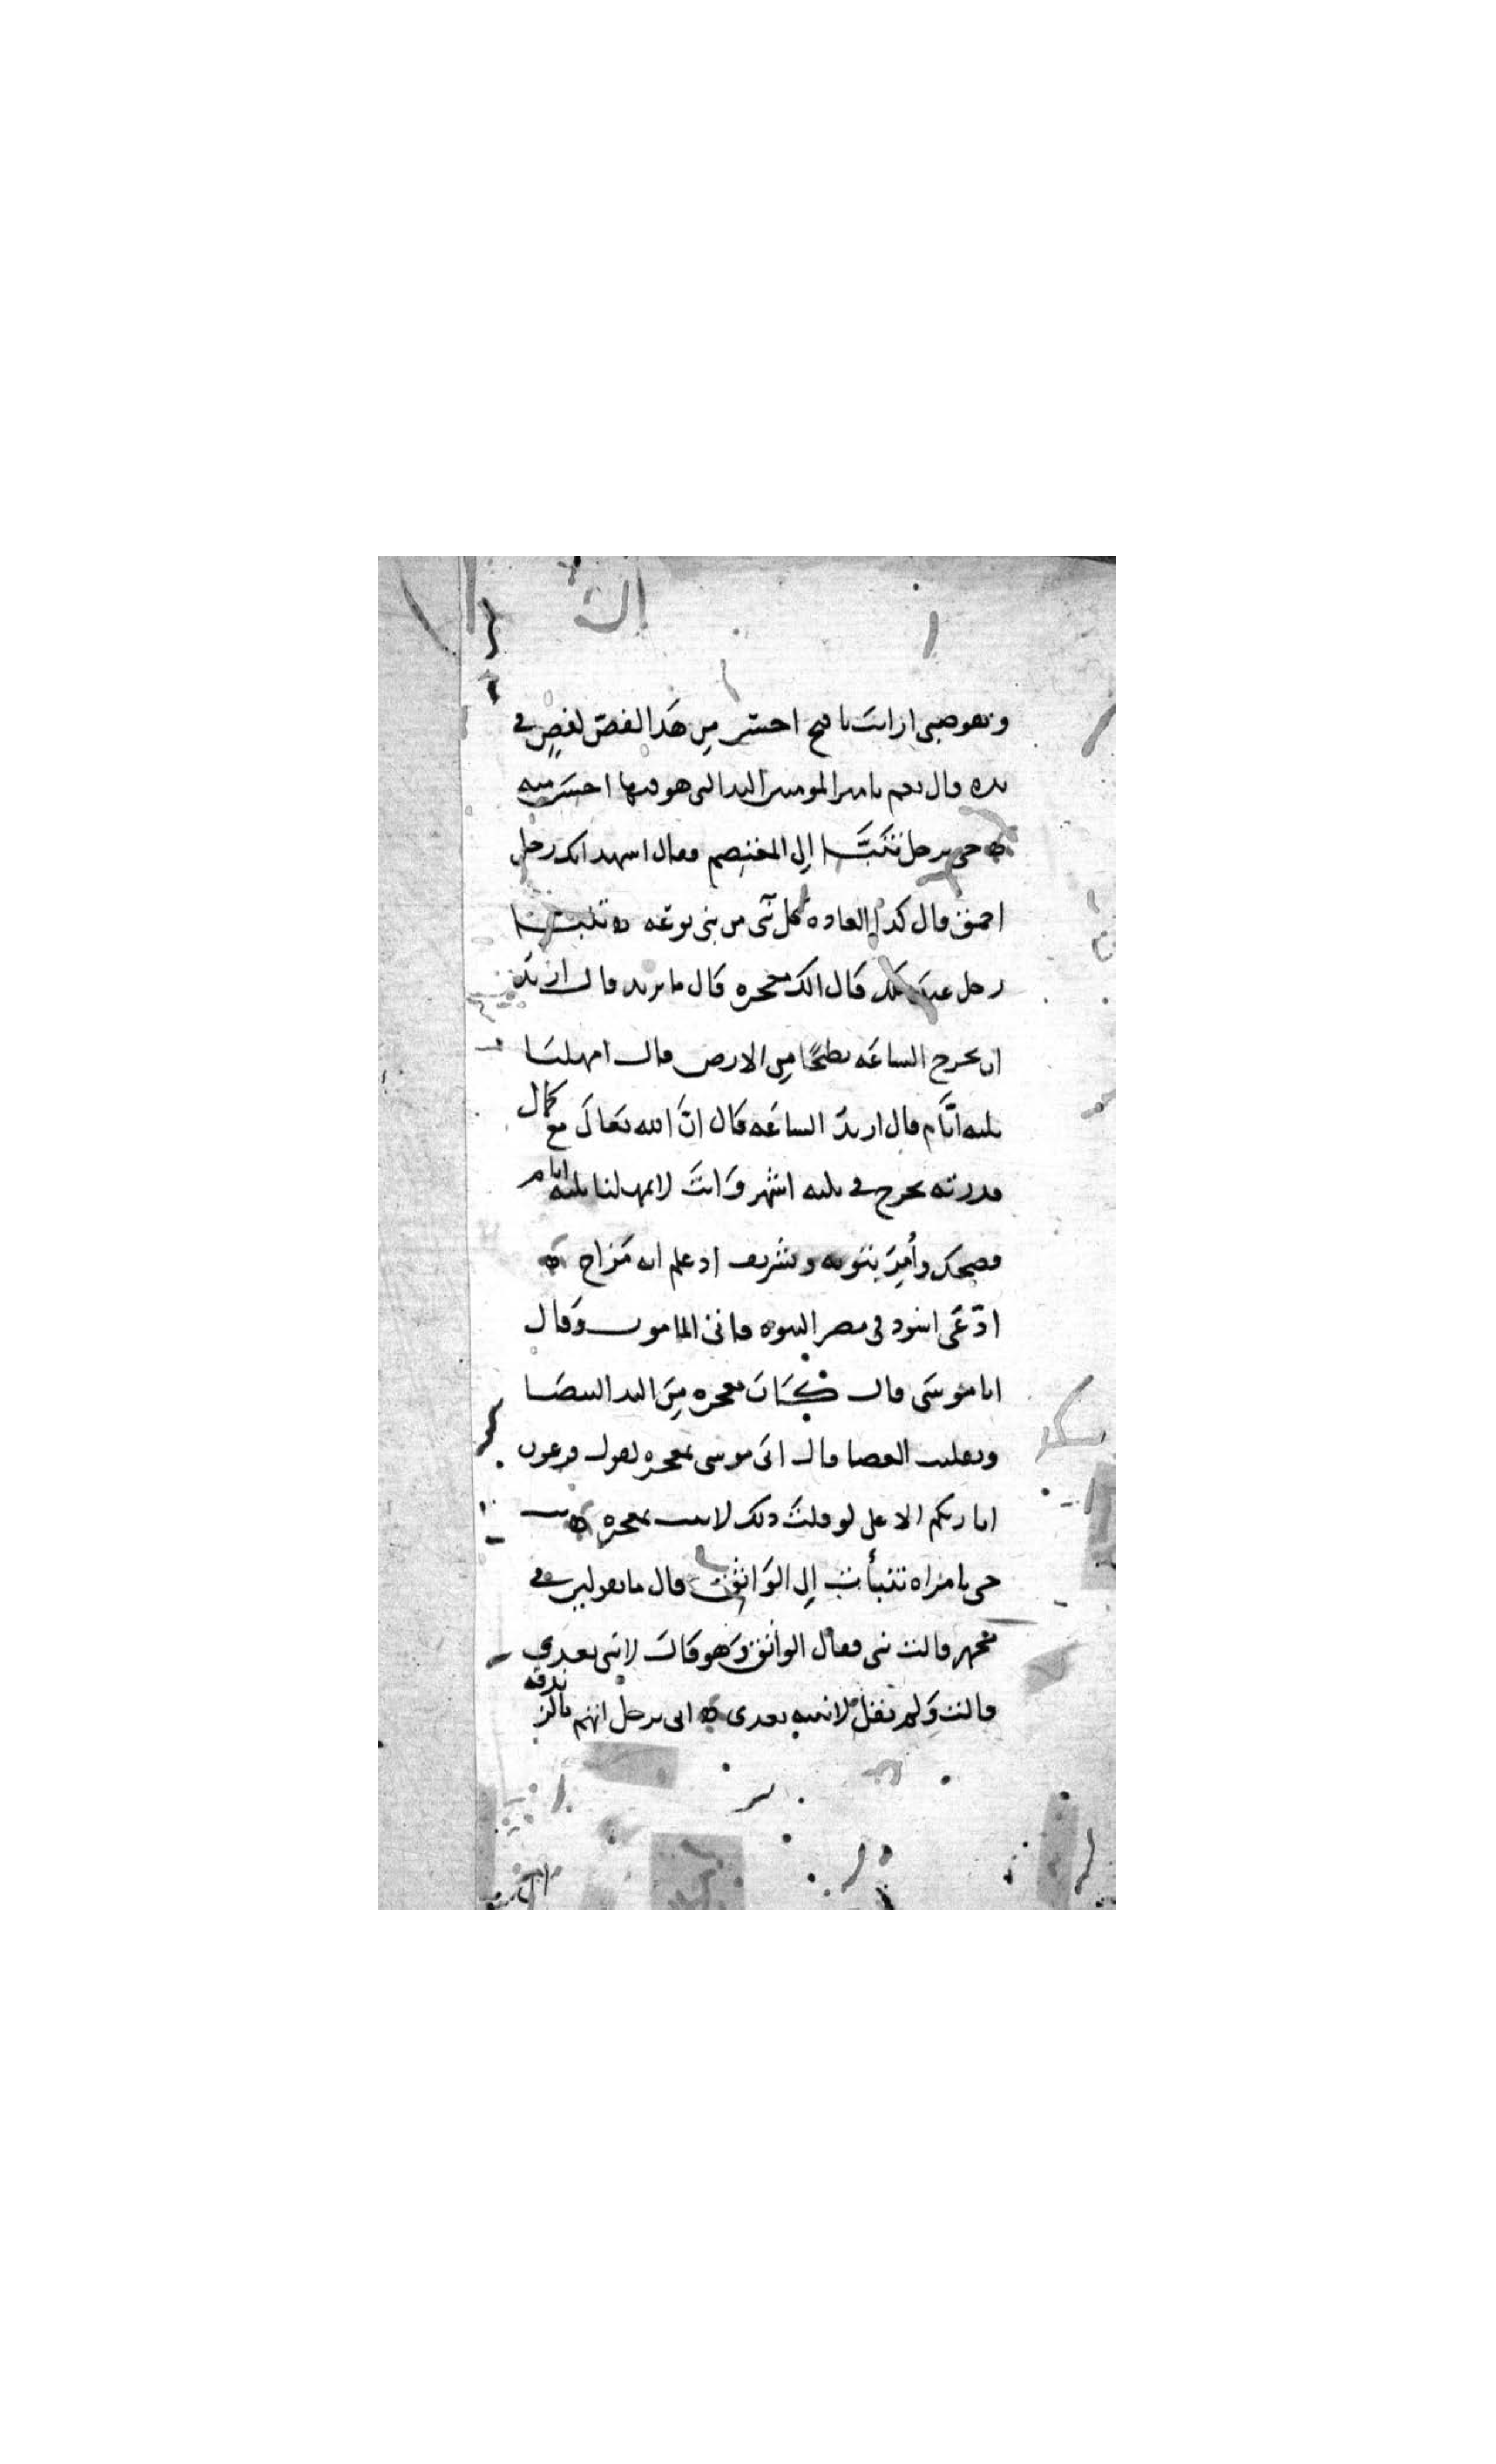 وهو صبى ارايت يا فتح احسن من هذا الفصّ لفصٍ في
يده قال نعم يا امير المومنين اليد التى هو فيها احسن منه
جى برجل تنبّا إلى المعتصم فقال اشهد انك رجل
احمق قال كذا العاده كل نبى من بنى نوعه تنبّا
رجل قال الك معجزه قال ما تريد قال اريد
ان تخرج الساعه بطيخًا من الارض قال امهلنا
ثلثه ايّام قال اريد الساعه قال انّ الله تعالى مع كمال
قدرته يخرج في ثلثه اشهر وانت لا تمهلنا ثلثه ايام
فضحك وأمر بتوبه وتشريف اذ علم انه مزاح
ادّعى اسود في مصر النبوه فاتى المامون وقال
انا موسى قال كان معجزه من اليد البيضا
وتقليب العصا قال اتى موسى بمعجزه لقول فرعون
انا ربكم الاعلى لو قلت ذلك لاتيت بمعجزه
جى بامراه تنبأت إلى الواثق قال ما تقولين في
محمد قالت نبى فقال الواثق وهو قال لا نبى بعدى
قالت ولم يقل لا نبيه بعدى اتى برجل اتهم بالزندقه